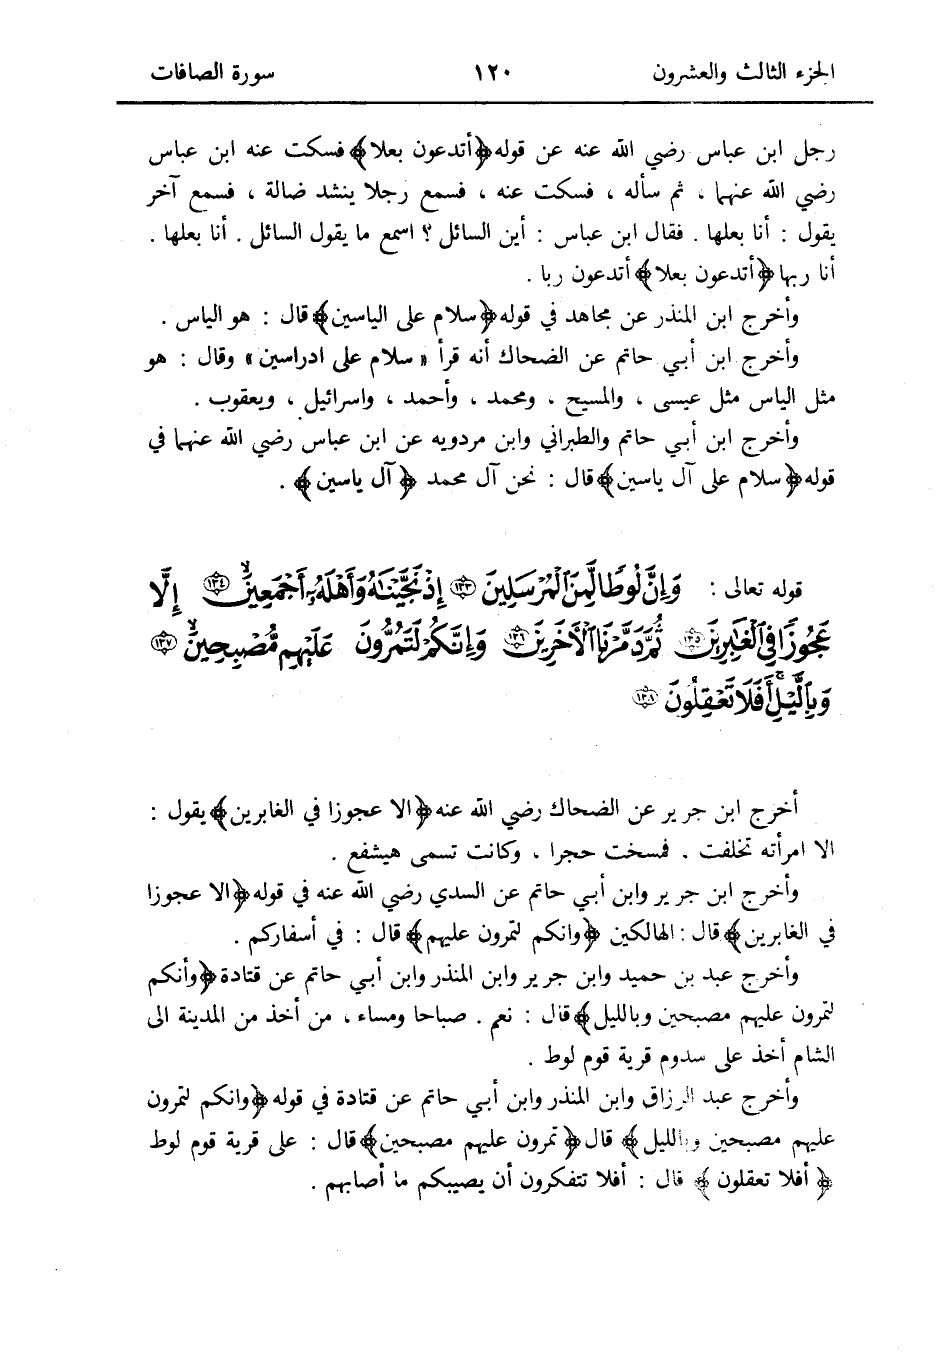 الجزء الثالث والعشرون ١٢٠ سورة الصافات
رجل ابن عباس رضي الله عنه عن قوله ﴿أتدعون بعلا﴾ فسكت عنه ابن عباس
رضي الله عنهما ، ثم سأله ، فسكت عنه ، فسمع رجلا ينشد ضالة ، فسمع آخر
يقول : أنا بعلها . فقال ابن عباس : أين السائل ؟ اسمع ما يقول السائل . أنا بعلها .
أنا ربها ﴿أتدعون بعلا﴾ أتدعون ربا .
وأخرج ابن المنذر عن مجاهد في قوله ﴿سلام على الياسين﴾ قال : هو الياس .
وأخرج ابن أبي حاتم عن الضحاك أنه قرأ « سلام على ادراسين » وقال : هو
مثل الياس مثل عيسى ، والمسيح ، ومحمد ، وأحمد ، واسرائيل ، ويعقوب .
وأخرج ابن أبي حاتم والطبراني وابن مردويه عن ابن عباس رضي الله عنهما في
قوله ﴿سلام على آل ياسين﴾ قال : نحن آل محمد ﴿آل ياسين﴾ .
قوله تعالى : وَإِنَّ لُوطًا لَّمِنَ ٱلْمُرْسَلِينَ ١٣٣ إِذْ نَجَّيْنَٰهُ وَأَهْلَهُۥٓ أَجْمَعِينَ ١٣٤ إِلَّا
عَجُوزًا فِى ٱلْغَٰبِرِينَ ١٣٥ ثُمَّ دَمَّرْنَا ٱلْأَخَرِينَ ١٣٦ وَإِنَّكُمْ لَتَمُرُّونَ عَلَيْهِم مُّصْبِحِينَ ١٣٧
وَبِٱلَّيْلِ أَفَلَا تَعْقِلُونَ ١٣٨
أخرج ابن جرير عن الضحاك رضي الله عنه ﴿الا عجوزا في الغابرين﴾ يقول :
الا امرأته تخلفت . فمسخت حجرا ، وكانت تسمى هيشفع .
وأخرج ابن جرير وابن أبي حاتم عن السدي رضي الله عنه في قوله ﴿الا عجوزا
في الغابرين﴾ قال : الهالكين ﴿وانكم لتمرون عليهم﴾ قال : في أسفاركم .
وأخرج عبد بن حميد وابن جرير وابن المنذر وابن أبي حاتم عن قتادة ﴿وأنكم
لتمرون عليهم مصبحين وبالليل﴾ قال : نعم . صباحا ومساء ، من أخذ من المدينة الى
الشام أخذ على سدوم قرية قوم لوط .
وأخرج عبد الرزاق وابن المنذر وابن أبي حاتم عن قتادة في قوله ﴿وانكم لتمرون
عليهم مصبحين وبالليل﴾ قال ﴿تمرون عليهم مصبحين﴾ قال : على قرية قوم لوط
﴿ أفلا تعقلون ﴾ قال : أفلا تتفكرون أن يصيبكم ما أصابهم .